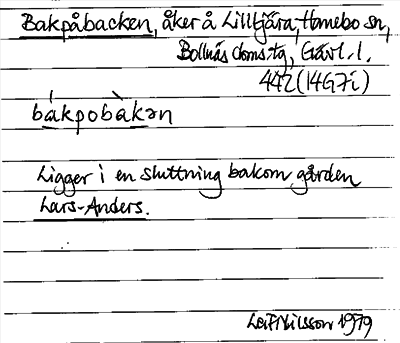 Bakpåbacken, åker å Lilltjära, Hanebo sn,
Bollnäs doms:ta, Gävl. l.
442 (14G7i)
bákpobàkən
Ligger i en sluttning bakom gården
Lars-Anders.
Leif Nilsson 1979